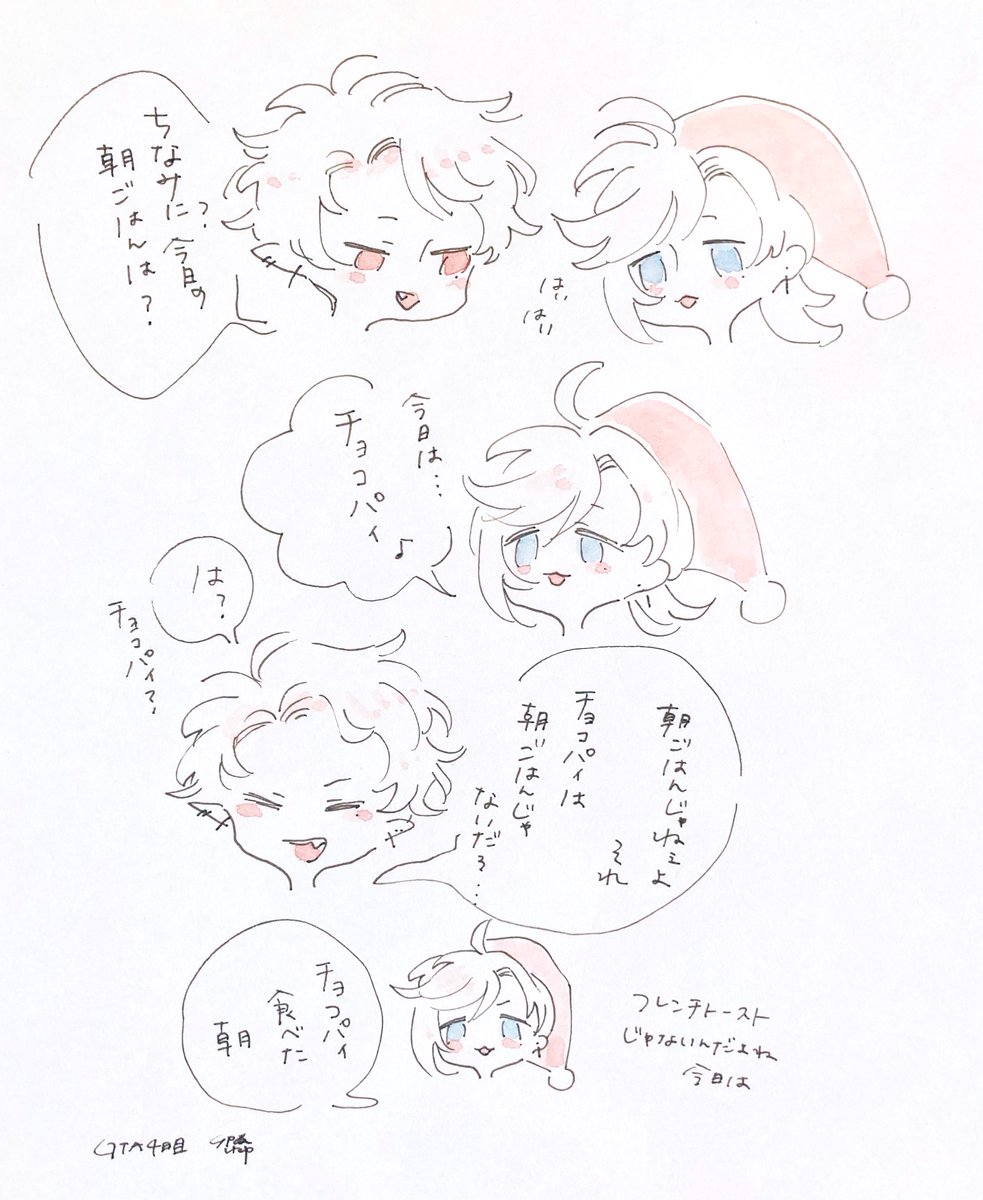 ちなみに?今日の
朝ごはんは?
はい
はい
今日は…
チョコパイ♪
は?
チョコパイ?
朝ごはんじゃねぇよ
それ
チョコパイは
朝ごはんじゃ
ないだろ…
チョコパイ
食べた
朝
フレンチトースト
じゃないんだよね
今日は
GTA4日目